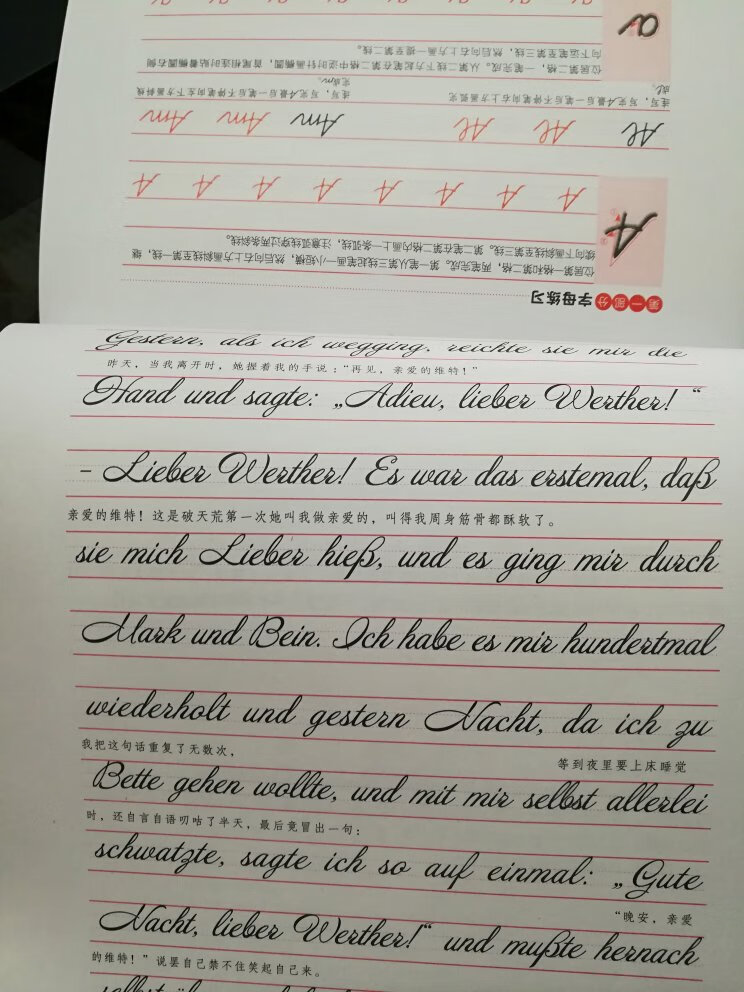 第一部分 字母练习
位居第一格和第二格，两笔完成。第一笔从第三线起笔画一小短横，然后向右上方画斜线至第一线，继
续向下画斜线至第三线。第二笔在第二格内画上一条弧线，注意弧线穿过两条斜线。
A A A A A A A A A
Al Al Al Am Am Am
连写，写完A最后一笔后不停笔向右上方画弧完
成l。
连写，写完A最后一笔后不停笔向左下方画斜线
完成m。
位居第二格，一笔完成。从第二线下方起笔在第二格逆时针画椭圆，首尾相连时贴着椭圆右侧
向下运笔至第三线，然后向右上方画一提至第二线。
a
Gestern, als ich wegging, reichte sie mir die
昨天，当我离开时，她握着我的手说：“再见，亲爱的维特！”
Hand und sagte: „Adieu, lieber Werther! “
- Lieber Werther! Es war das erstemal, daß
亲爱的维特！这是破天荒第一次她叫我做亲爱的，叫得我周身筋骨都酥软了。
sie mich Lieber hieß, und es ging mir durch
Mark und Bein. Ich habe es mir hundertmal
wiederholt und gestern Nacht, da ich zu
我把这句话重复了无数次， 等到夜里要上床睡觉
Bette gehen wollte, und mit mir selbst allerlei
时，还自言自语叨咕了半天，最后竟冒出一句：
schwatzte, sagte ich so auf einmal: „Gute
“晚安，亲爱
Nacht, lieber Werther!“ und mußte hernach
的维特！”说罢自己禁不住笑起自己来。
selbst